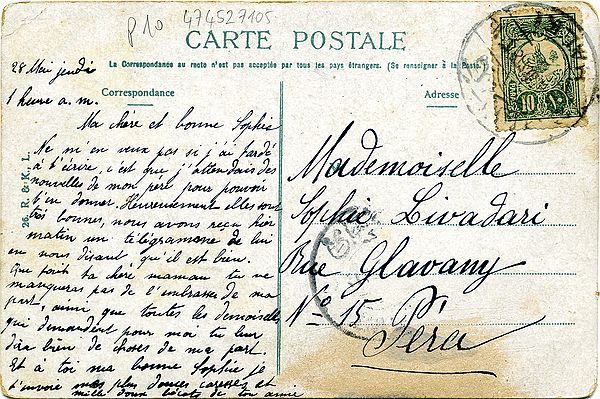 P10 474527105
CARTE POSTALE
La Correspondance au recto n'est pas acceptée par tous les pays étrangers. (Se renseigner à la Poste)
Correspondance
Adresse
28 Mai jeudi
1 heure a. m.
Ma chère et bonne Sophie
Ne m'en veux pas si j'ai tardé
à t'écrire, c'est que j'attendais des
nouvelles de mon père pour pouvoir
t'en donner. Heureusement elles sont
très bonnes, nous avons reçu hier
matin un télégramme de lui
en nous disant qu'il est bien.
Que fait ta chère maman tu ne
manqueras pas de l'embrasser de ma
part, ainsi que toutes les demoiselles
qui demandent pour moi tu leur
diras bien de choses de ma part.
Et à toi ma bonne Sophie je
t'envoie mes plus douces caresses et
mille doux de ton amie
26. R. & K. I.
Mademoiselle
Sophie Livadari
Rue Glavany
No 15 Péra
10 ١٠